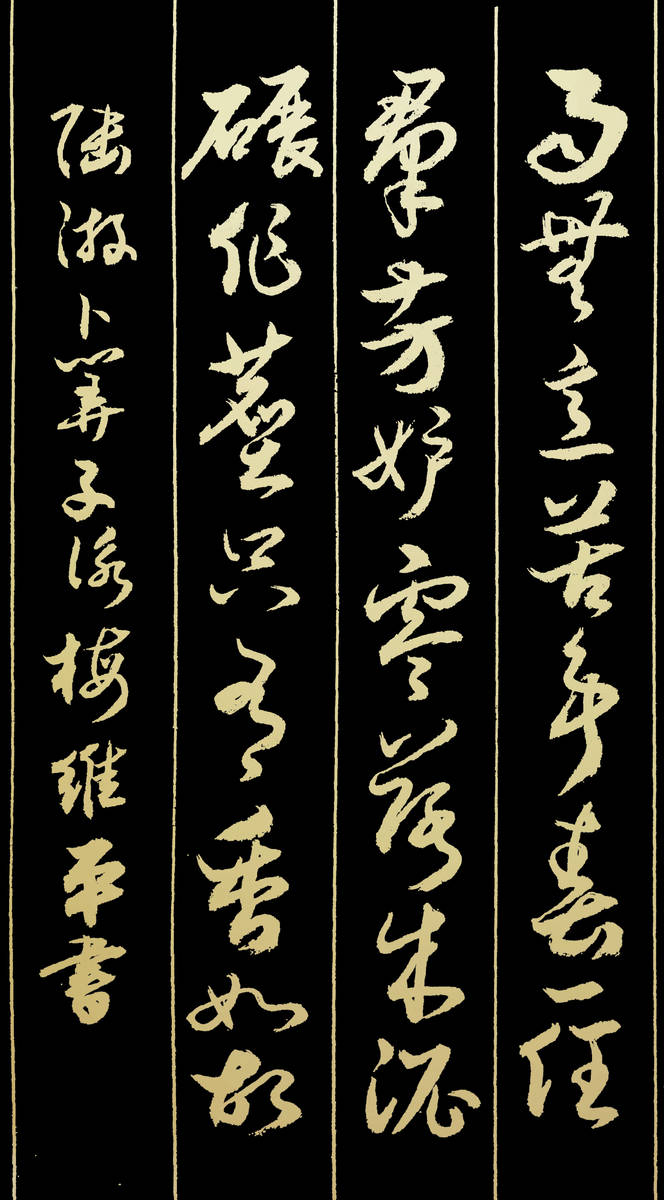 雨無意苦爭春一任
羣芳妒零落成泥
碾作塵只有香如故
陸游卜算子詠梅維平書